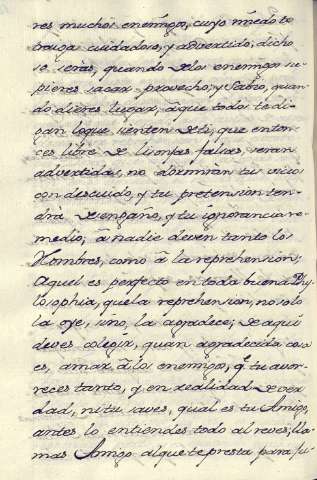 res muchos enemigos, cuyo miedo te
trayga cuidadoso, y advertido; dicho
so seras, quando de los enemigos su
pieres sacar provecho; y Sabio, quan
do dieres lugar, à que todos te di
gan loque sienten de ti, que enton
ces libre de lisonjas falsas, seran
advertidas, no dormiran tus vicios
con descuido, y tu pretension ten
drà desengaño, y tu ignorancia re
medio; à nadie deven tanto los
Hombres, como à la reprehension;
Aquel es perfecto en toda buena Phy
losophia, quela reprehension, no solo
la oye, sino, la agradece; de aqui
deves colegir, quan agradecida cosa
es, amar à los enemigos, q̃ tu avor
reces tanto, y en realidad de ver
dad, ni tu saves, qual es tu Amigo,
antes lo entiendes todo al reves; lla
mas Amigo alque te presta para ju